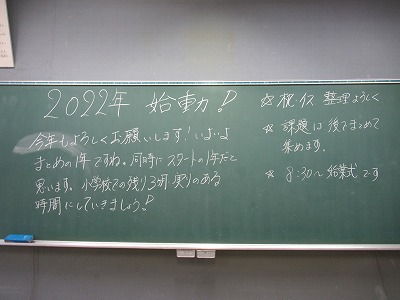 2022年 始動!
今年もよろしくお願いします!いよいよ
まとめの1年ですね。同時にスタートの1年だと
思います。小学校での残り3ヶ月、実りのある
時間にしていきましょう!
☆ 机、イス 整理よろしく
☆ 課題は後でまとめて
集めます。
☆ 8:30~始業式です